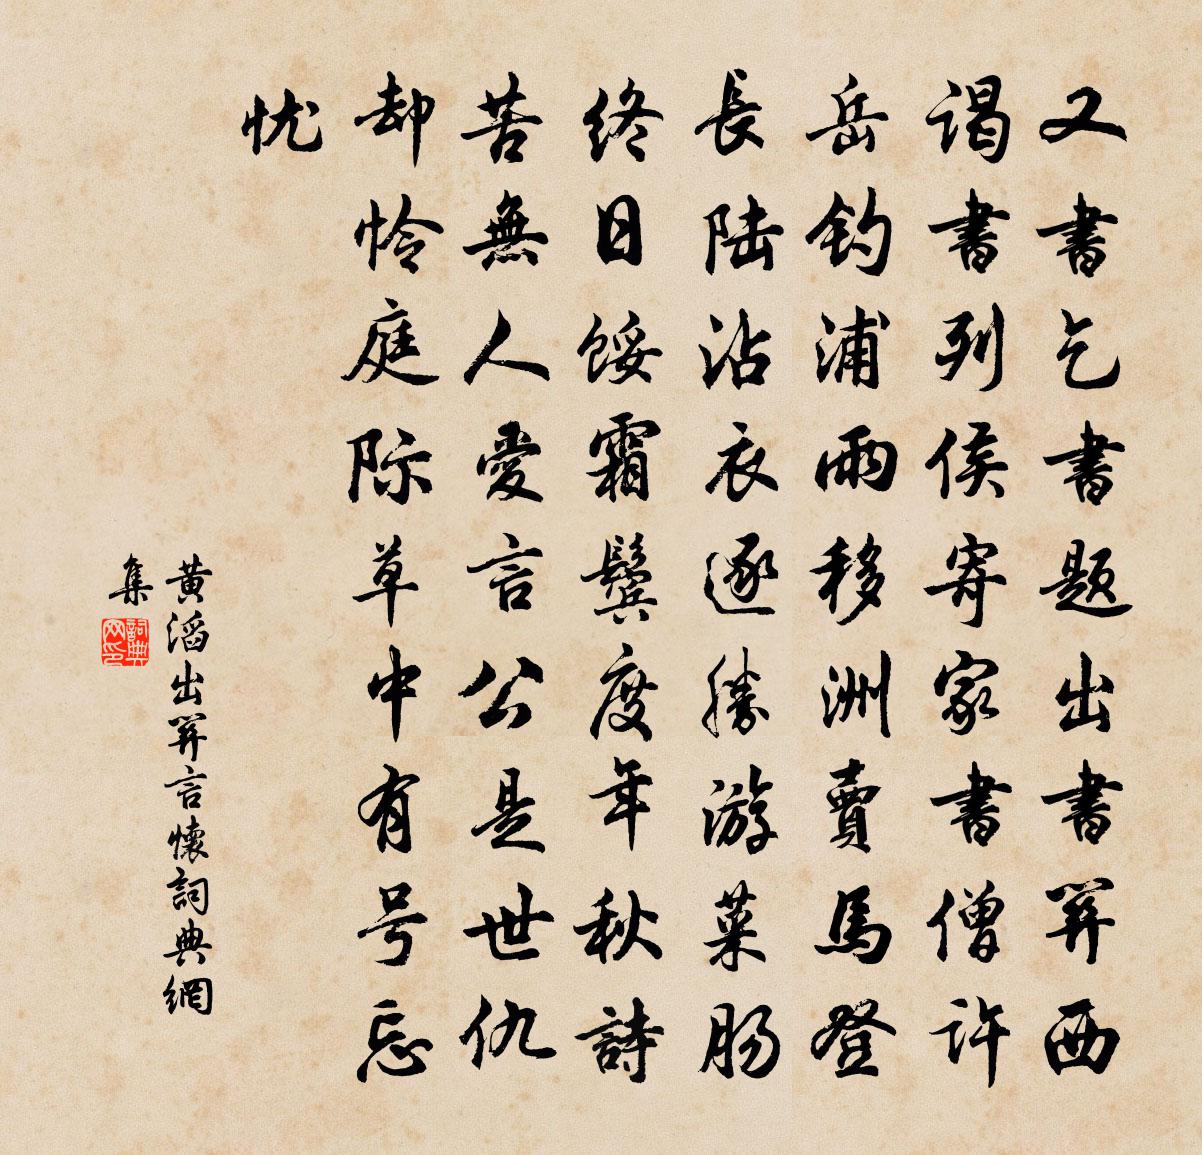 又書乞書题出書关西
谒書列侯寄家書僧许
岳钓浦雨移洲賣馬登
長陆沾衣逐勝游菜肠
终日馁霜鬓度年秋詩
苦無人愛言公是世仇
却怜庭际草中有号忘
忧
黄滔出关言懷詞典網
集
詞典網印